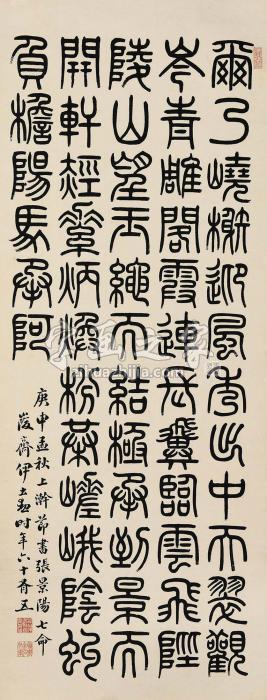 爾乃嶢榭迎風秀出中天翠觀
岑青雕閣霞連長翼臨雲飛陛
陵山望玉繩而結極承到景而
開軒赬素炳煥枌栱嵯峨陰虬
負檐陽馬承阿
庚申孟秋上澣節書張景陽七命
峻齋伊立勳時年六十有五